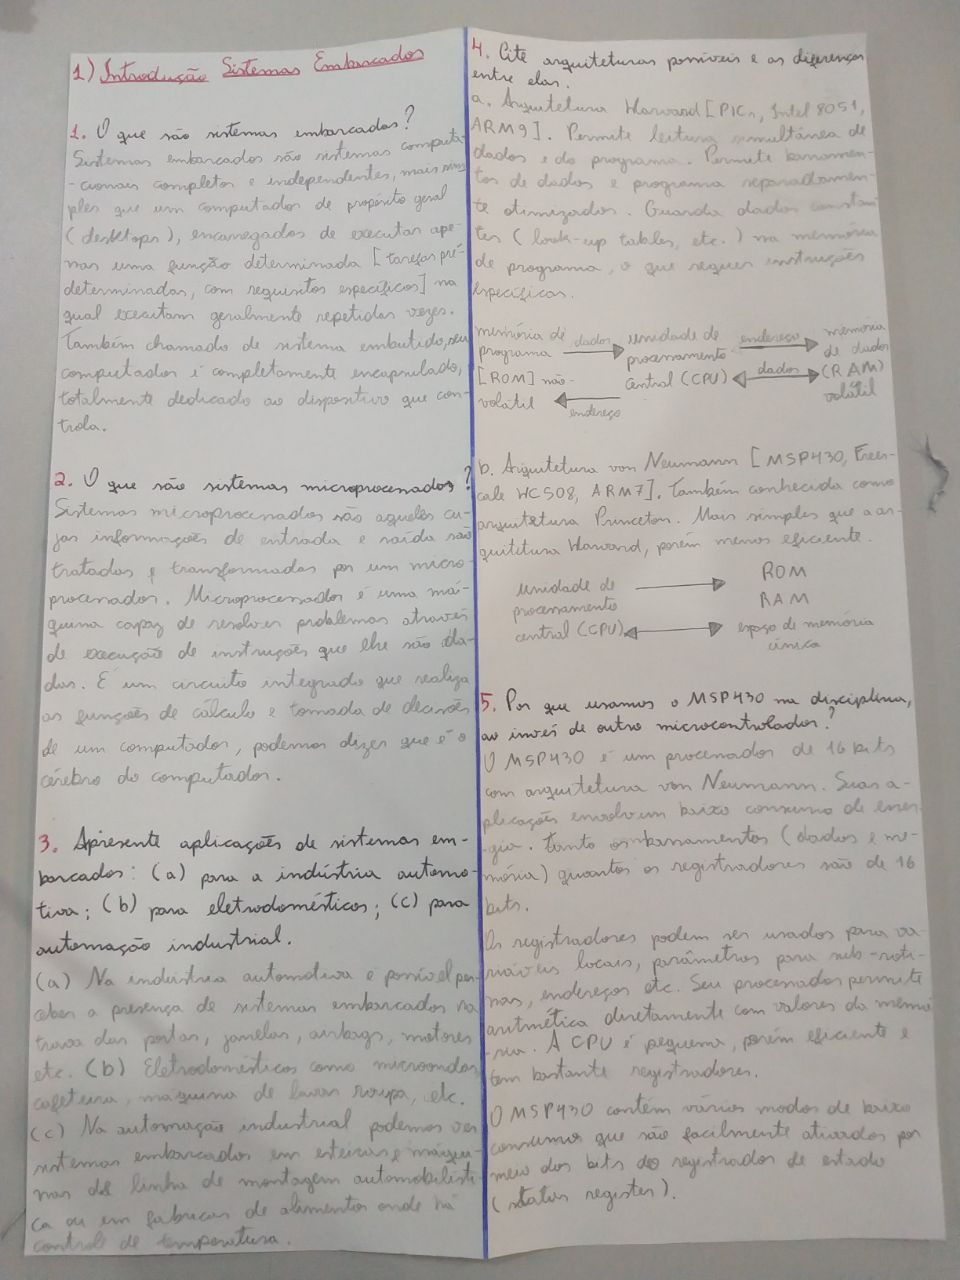 1) Introdução Sistemas Embarcados
1. O que são sistemas embarcados?
Sistemas embarcados são sistemas computa-
-cionais completos e independentes, mais sim
ples que um computador de propósito geral
(desktops), encarregados de executar ape-
nas uma função determinada [tarefas pré-
determinadas, com requisitos específicos] na
qual executam geralmente repetidas vezes.
Também chamado de sistema embutido, seu
computador é completamente encapsulado,
totalmente dedicado ao dispositivo que con-
trola.
2. O que são sistemas microprocessados?
Sistemas microprocessados são aqueles cu-
jas informações de entrada e saída são
tratadas e transformadas por um micro-
processador. Microprocessador é uma má-
quina capaz de resolver problemas através
de execução de instruções que lhe são da-
das. É um circuito integrado que realiza
as funções de cálculo e tomada de decisões
de um computador, podemos dizer que é o
cérebro do computador.
3. Apresente aplicações de sistemas em-
barcados: (a) para a indústria automo-
tiva; (b) para eletrodomésticos; (c) para
automação industrial.
(a) Na indústria automotiva é possível per-
ceber a presença de sistemas embarcados na
trava das portas, janelas, airbags, motores
etc. (b) Eletrodomésticos como microondas,
cafeteira, máquina de lavar roupa, etc.
(c) Na automação industrial podemos ver
sistemas embarcados em esteiras e máqui-
nas de linha de montagem automobilísti-
ca ou em fábricas de alimentos onde há
controle de temperatura.
4. Cite arquiteturas possíveis e as diferenças
entre elas.
a. Arquitetura Harvard [PICs, Intel 8051,
ARM9]. Permite leitura simultânea de
dados e do programa. Permite barramen-
tos de dados e programa separadamen-
te otimizados. Guarda dados constan
tes (look-up tables, etc.) na memória
de programa, o que requer instruções
específicas.
memória de programa [ROM] não-volátil
dados
endereço
unidade de processamento central (CPU)
endereço
dados
memória de dados (RAM) volátil
b. Arquitetura von Neumann [MSP430, Frees-
cale HCS08, ARM7]. Também conhecida como
arquitetura Princeton. Mais simples que a ar-
quitetura Harvard, porém menos eficiente.
unidade de processamento central (CPU)
ROM
RAM
espaço de memória
única
5. Por que usamos o MSP430 na disciplina,
ao invés de outro microcontrolador?
O MSP430 é um processador de 16 bits
com arquitetura von Neumann. Suas a-
plicações envolvem baixo consumo de ener-
gia. Tanto os barramentos (dados e me-
mória) quantos os registradores são de 16
bits.
Os registradores podem ser usados para va-
riáveis locais, parâmetros para sub-roti-
nas, endereços etc. Seu processador permite
aritmética diretamente com valores da memó
-ria. A CPU é pequena, porém eficiente e
tem bastante registradores.
O MSP430 contém vários modos de baixo
consumo que são facilmente ativados por
meio dos bits do registrador de estado
(status register).